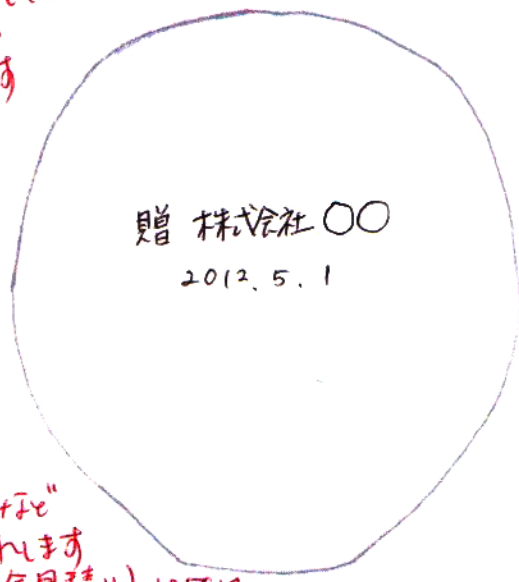 す
贈 株式会社 〇〇
2012. 5. 1
など
れします